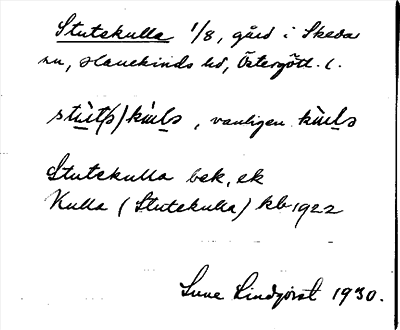 Stutekulla 1/8, gård i Skeda
sn, Hanekinds hd, Östergötl. l.
stùt(ə)kùlə, vanligen kùlə
Stutekulla bek, ek
Kulla (Stutekulla) kb 1922
Sune Lindqvist 1930.